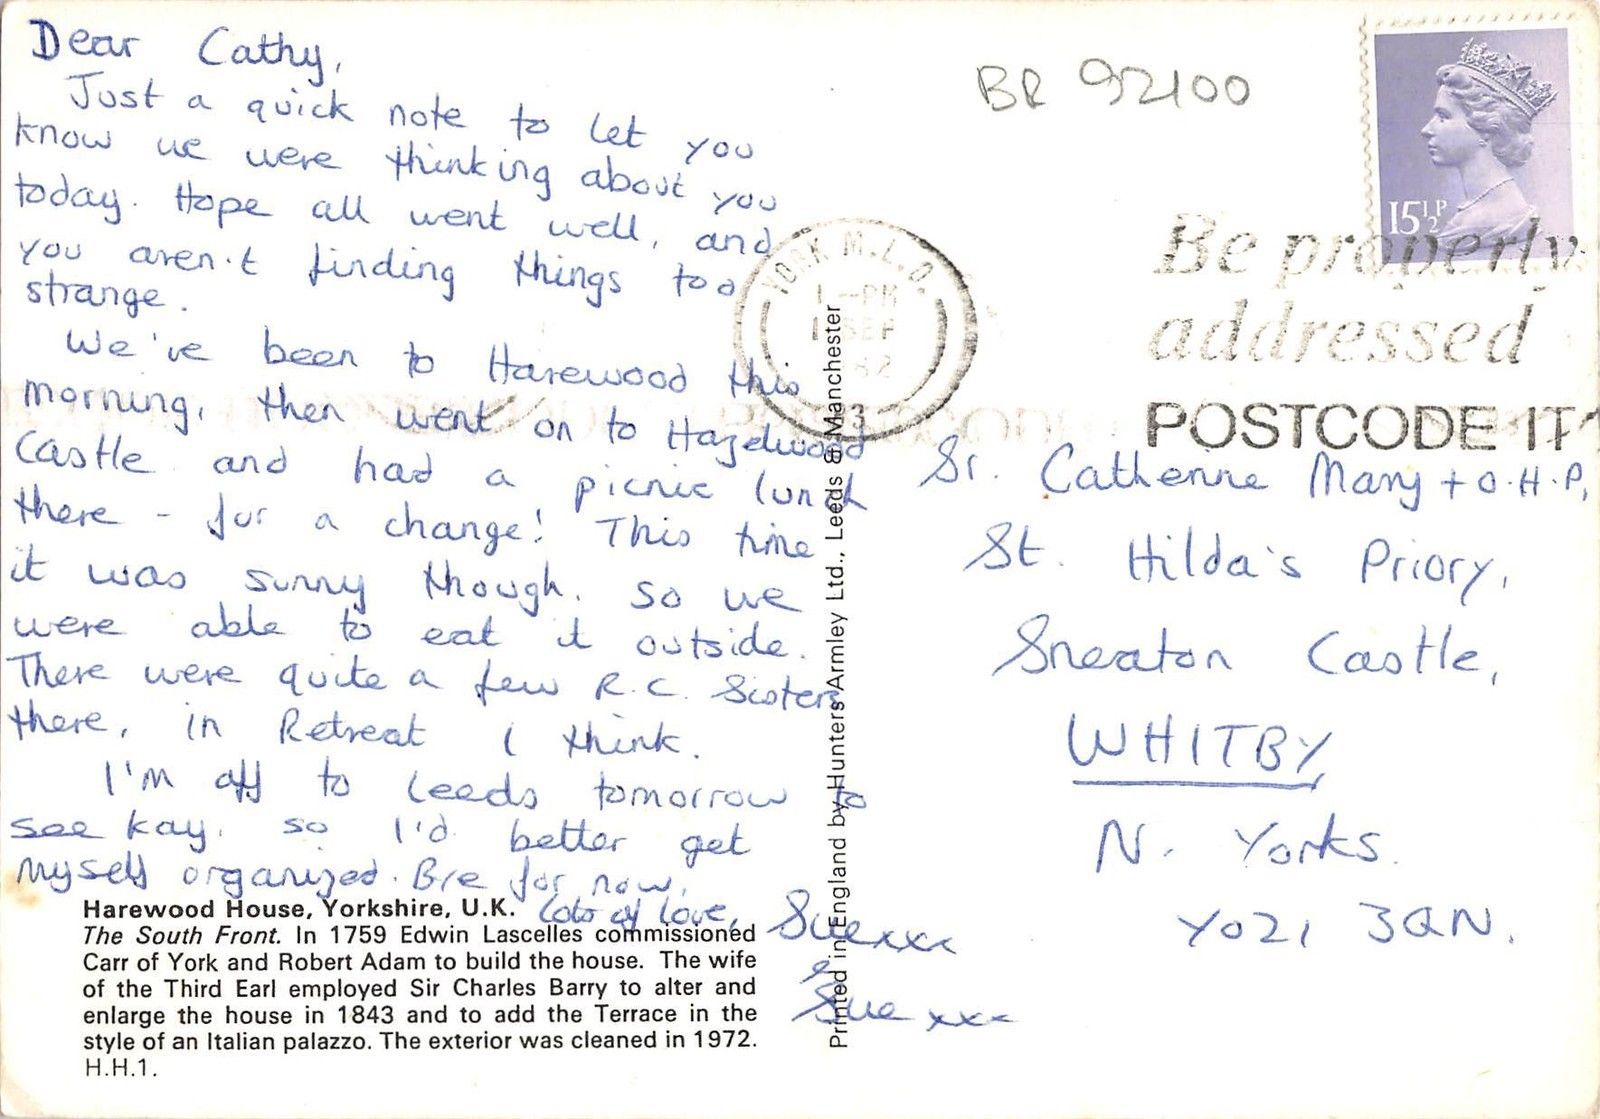 Dear Cathy,
Just a quick note to let you
know we were thinking about you
today. Hope all went well, and
you aren't finding things too
strange.
We've been to Harewood this
morning, then went on to Hazelwood
Castle and had a picnic lunch
there - for a change! This time
it was sunny though. so we
were able to eat it outside.
There were quite a few R.C. Sisters
there, in Retreat I think.
I'm off to Leeds tomorrow to
see Kay. so I'd better get
myself organized. Bye for now,
Lots of love, Sue xxx
&
Sue xxx
Harewood House, Yorkshire, U.K.
The South Front. In 1759 Edwin Lascelles commissioned
Carr of York and Robert Adam to build the house. The wife
of the Third Earl employed Sir Charles Barry to alter and
enlarge the house in 1843 and to add the Terrace in the
style of an Italian palazzo. The exterior was cleaned in 1972.
H.H.1.
Printed in England by Hunters Armley Ltd., Leeds & Manchester
BR 92100
15½P
YORK M.L.O.
PM
SEP
82
3
Be properly
addressed
POSTCODE IT
Sr. Catherine Mary + O.H.P,
St. Hilda's Priory,
Sneaton Castle,
WHITBY,
N. Yorks.
YO21 3QN.